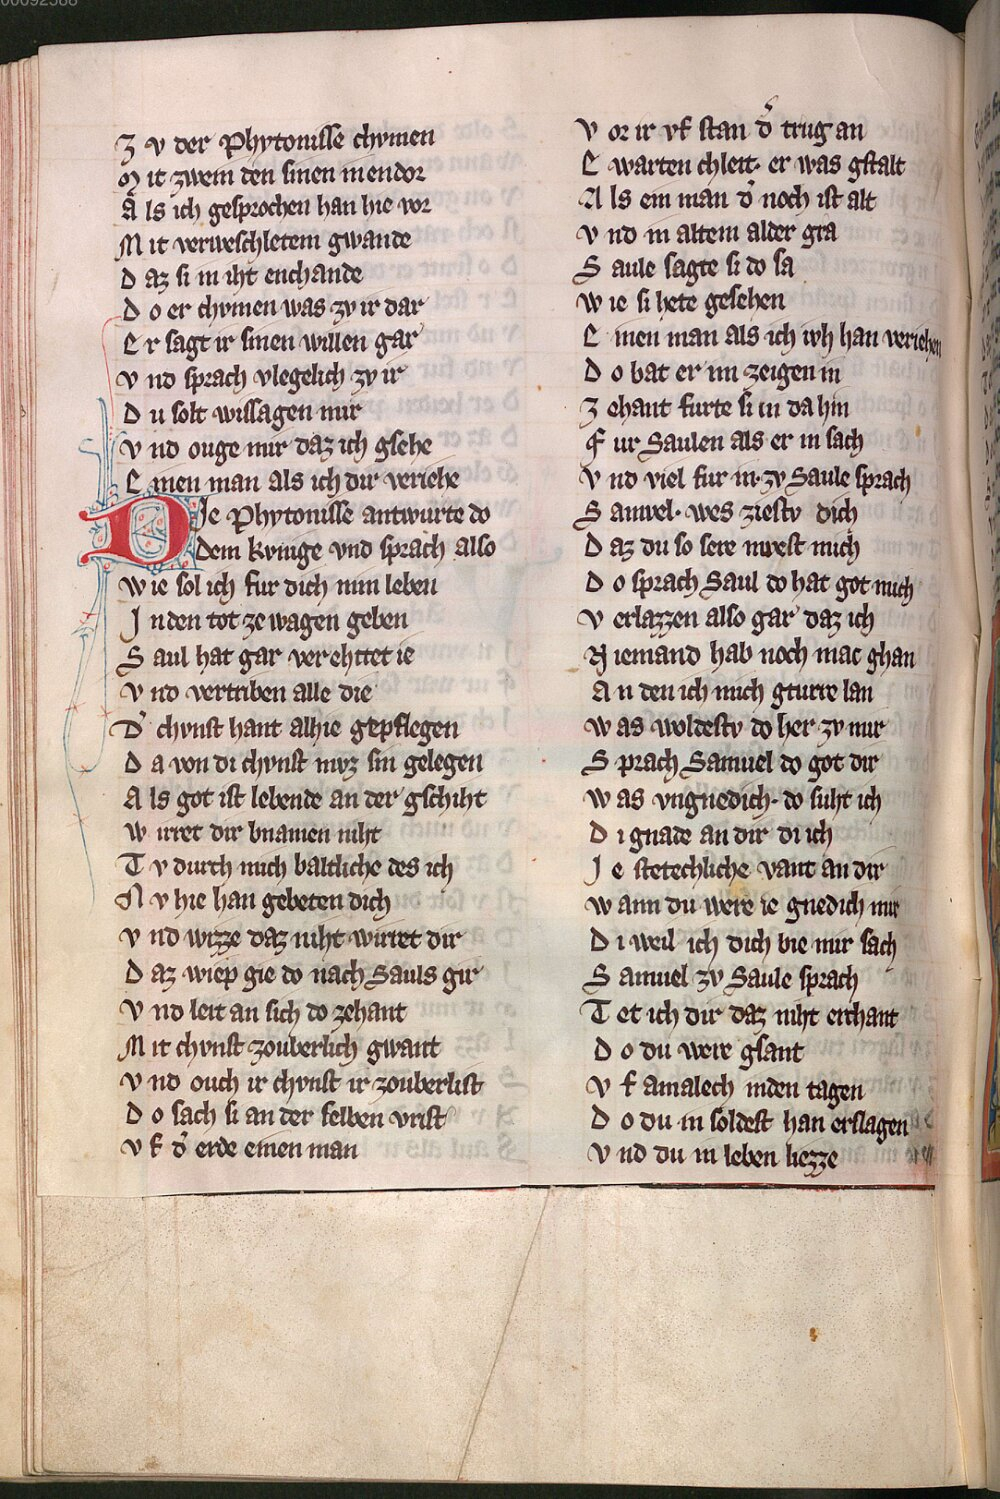 00092588
Z v der Phytonisse chvmen
M it zwein den sinen in endor
A ls ich gesprochen han hie vor
M it verweschletem gwande
D az si in iht enchande
D o er chvmen was zv ir dar
E r sagt ir sinen willen gar
v nd sprach vlegelich zv ir
D u solt wissagen mir
v nd ouge mir daz ich gsehe
E inen man als ich dir veriehe
DIe Phytonisse antwurte do
Dem kvnige vnd sprach also
w ie sol ich fur dich min leben
I n den tot ze wagen geben
S aul hat gar verehttet ie
v nd vertriben alle die
D' chvnst hant alhie gepflegen
D a von di chvnst mvz sin gelegen
A ls got ist lebende an der gschiht
w irret dir bnamen niht
T v durch mich baltliche des ich
N v hie han gebeten dich
v nd wizze daz niht wirret dir
D az wiep gie do nach Sauls gir
v nd leit an sich do zehant
M it chvnst zouberlich gwant
v nd ouch ir chvnst ir zouberlist
D o sach si an der selben vrist
v f d' erde einen man
v or ir vf stan d' trug an
E warten chleit· er was gstalt
A ls ein man d' noch ist alt
v nd in altem alder gra
S aule sagte si do sa
w ie si hete gesehen
E inen man als ich ivh han veriehen
D o bat er im zeigen in
Z ehant furte si in da hin
F ur Saulen als er in sach
v nd viel fur in· zv Saule sprach
S amvel· wes ziestv dich
D az du so sere mvest mich
D o sprach Saul do hat got mich
v erlazzen also gar daz ich
N iemand hab noch mac ghan
A n den ich mich gturre lan
w as woldestv do her zv mir
S prach Samuel do got dir
w as vngnedich· do suht ich
D i gnade an dir di ich
I e stetechliche vant an dir
w ann du were ie gnedich mir
D i weil ich dich bie mir sach
S amuel zv Saule sprach
T et ich dir daz niht erchant
D o du were gsant
v f amalech in den tagen
D o du in soldest han erslagen
v nd du in leben liezze